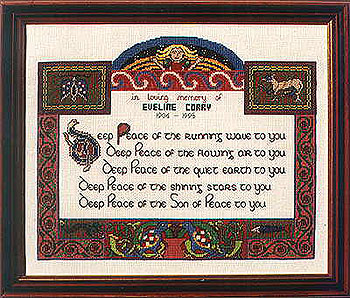 in loving memory of
EVELINE CORRY
1904 - 1995
Deep Peace of the running wave to you
Deep Peace of the flowing air to you
Deep Peace of the quiet earth to you
Deep Peace of the shining stars to you
Deep Peace of the Son of Peace to you